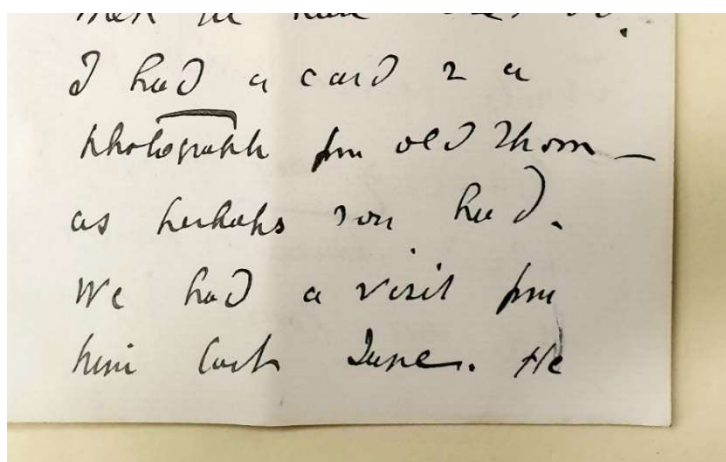 I had a card & a
photograph from old Thom –
as perhaps you had.
We had a visit from
him last June. He